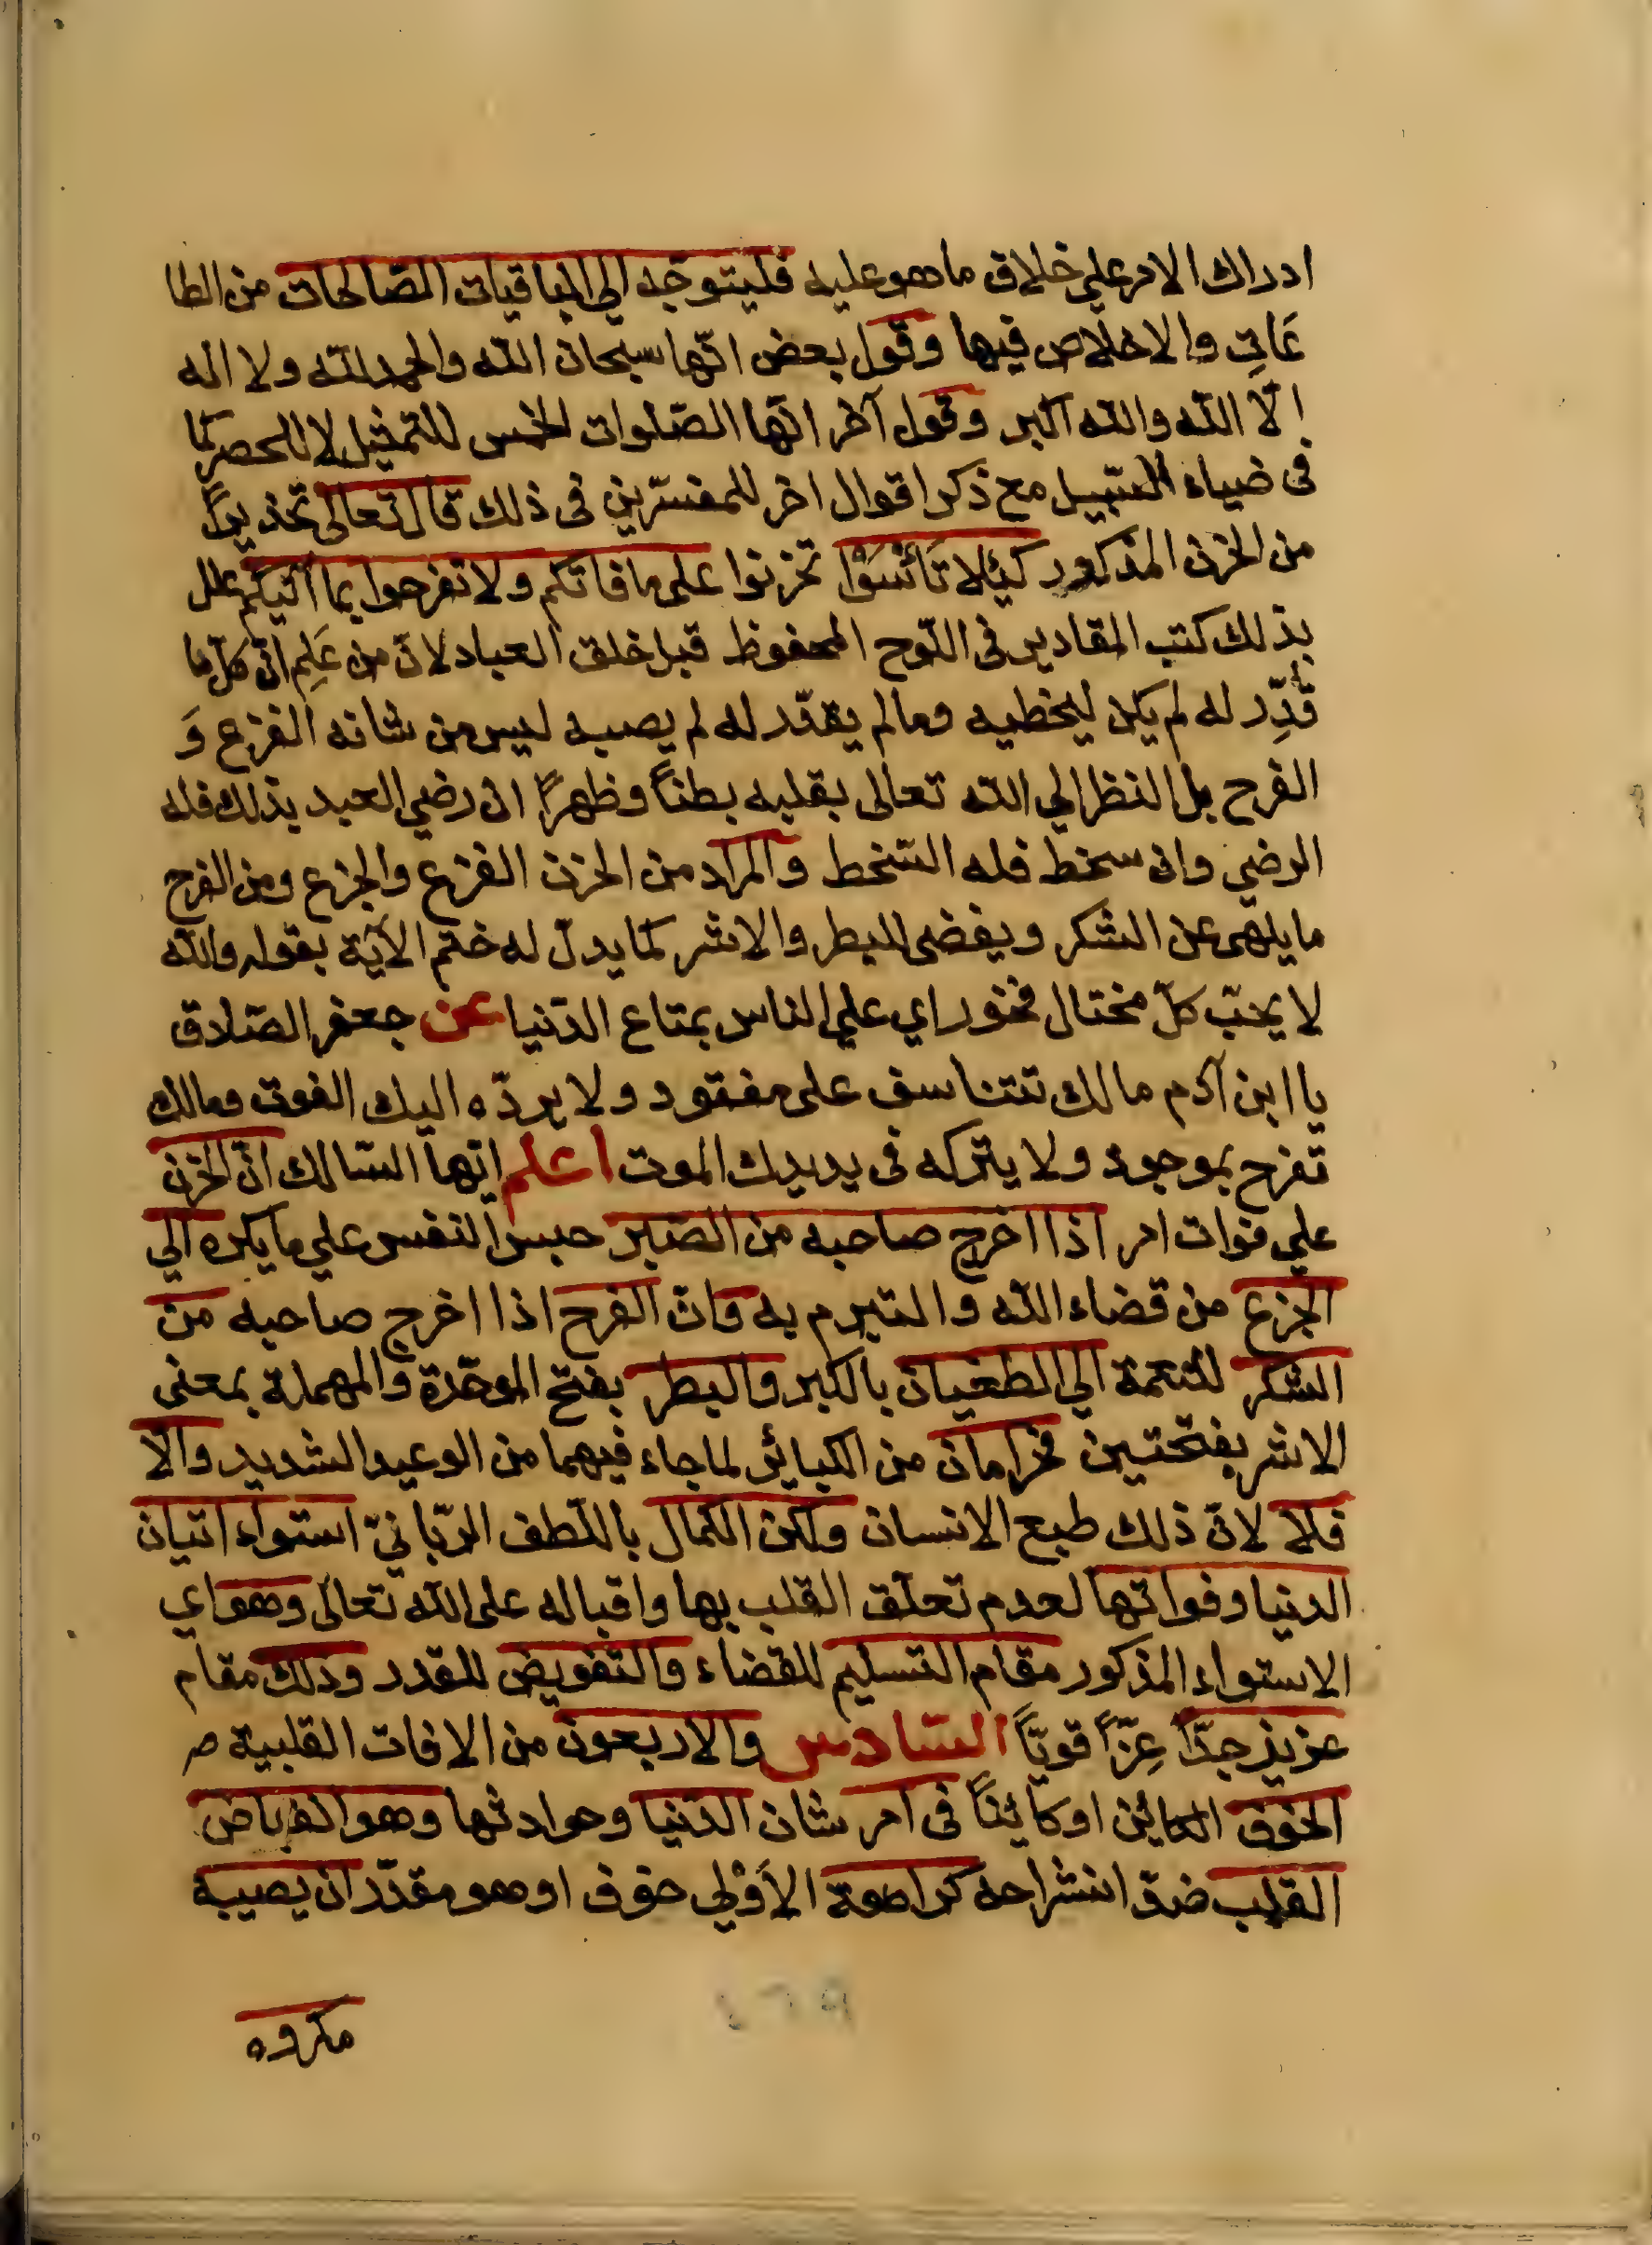 ادراك الامر علي خلاف ما هو عليه فليتوجّه الي الباقيات الصّالحات من الطا
عَاتِ والاخلاص فيها وقول بعض انّها سبحان الله والحمد لله ولا اله
الّا الله والله اكبر وقول آخر انّها الصّلوات الخمس للتمثيل لا للحصر كما
فى ضياء السّبيل مع ذكر اقوال اخر للمفسّرين فى ذلك قال تعالى تحذيراً
من الحزن المذكور كَيْلا تَأْسَوْا تحزنوا على ما فاتكم ولا تفرحوا بما اتيكم علل
بذلك كتب المقادير فى اللّوح المحفوظ قبل خلق العباد لانّ من عَلِم انّ كلّ ما
قُدِّر له لم يكن ليخطيه وما لم يقدّر له لم يصبه ليس من شانه الفزع وَ
الفرح بل النظر الي الله تعالى بقلبه بطناً وظهراً ان رضي العبد بذلك فله
الرضي وان سخط فله السّخط والمراد من الحزن الفزع والجزع ومن الفرح
ما يلهى عن الشكر ويفضى للبطر والاشر كما يدلّ له ختم الآية بقوله والله
لا يحبّ كلّ مختال فخور اي علي الناس بمتاع الدّنيا عن جعفر الصّادق
يا ابن آدم مالك تتناسف على مفقود ولا يردّه اليك الفوت ومالك
تفرح بموجود ولا يتركه فى يديك الموت اعلم ايّها السّالك انّ الحزن
علي فوات امر اذا اخرج صاحبه من الصّبر حبس النفس علي ما يكره الي
الجزع من قضاء الله والتبرم به وان الفرح اذا اخرج صاحبه من
الشكر للنّعمة الي الطغيان بالكبر والبطر بفتح الموحّدة والمهملة بمعنى
الاشر بفتحتين فحرامان من الكبائر لما جاء فيهما من الوعيد الشديد والّا
فلا لانّ ذلك طبع الانسان ولكن الكمال باللّطف الرّبّانيّ استواء اتيان
الدنيا وفواتها لعدم تعلّق القلب بها واقباله على الله تعالى وهو اي
الاستواء المذكور مقام التسليم للقضاء والتفويض للقدر وذلك مقام
عزيز جدّاً عِزّاً قويّاً السّادس والاربعون من الافات القلبية
الخوف الكاين او كايناً فى امر شان الدّنيا وحوادثها وهو انقباض
القلب ضدّ انشراحه كراهة الأوْلي خوف او هو مقدّر ان يصيبه
مكروه